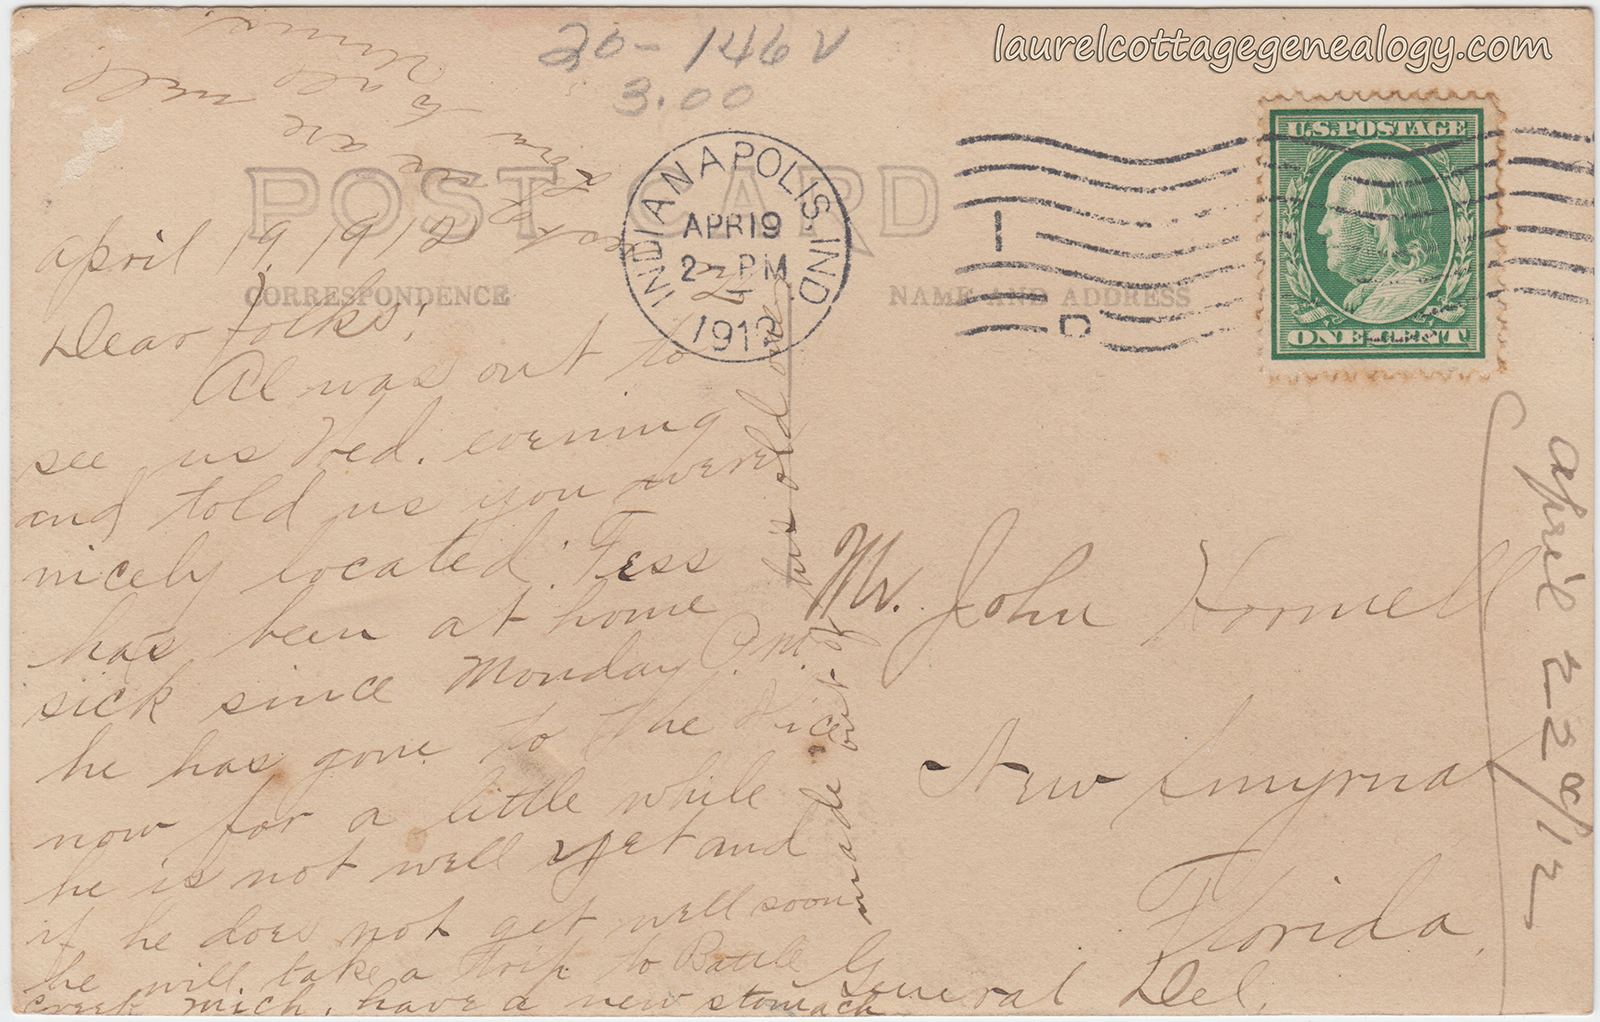 laurelcottagegenealogy.com
20-146 V
3.00
U.S. POSTAGE
ONE CENT
POST CARD
INDIANAPOLIS, IND
APR 19
2 - PM
1912
CORRESPONDENCE
NAME AND ADDRESS
April 19, 1912
Dear Folks;
Al was out to
see us Wed. evening
and told us you were
nicely located. Tess
has been at home
sick since Monday P.M.
he has gone to the office
now for a little while
he is not well yet and
if he does not get well soon
he will take a trip to Battle
Creek Mich. have a new stomach
made out of his old one
we are
all well
Mr. John Hornell
New Smyrna
Florida,
General Del.
April 22nd/12